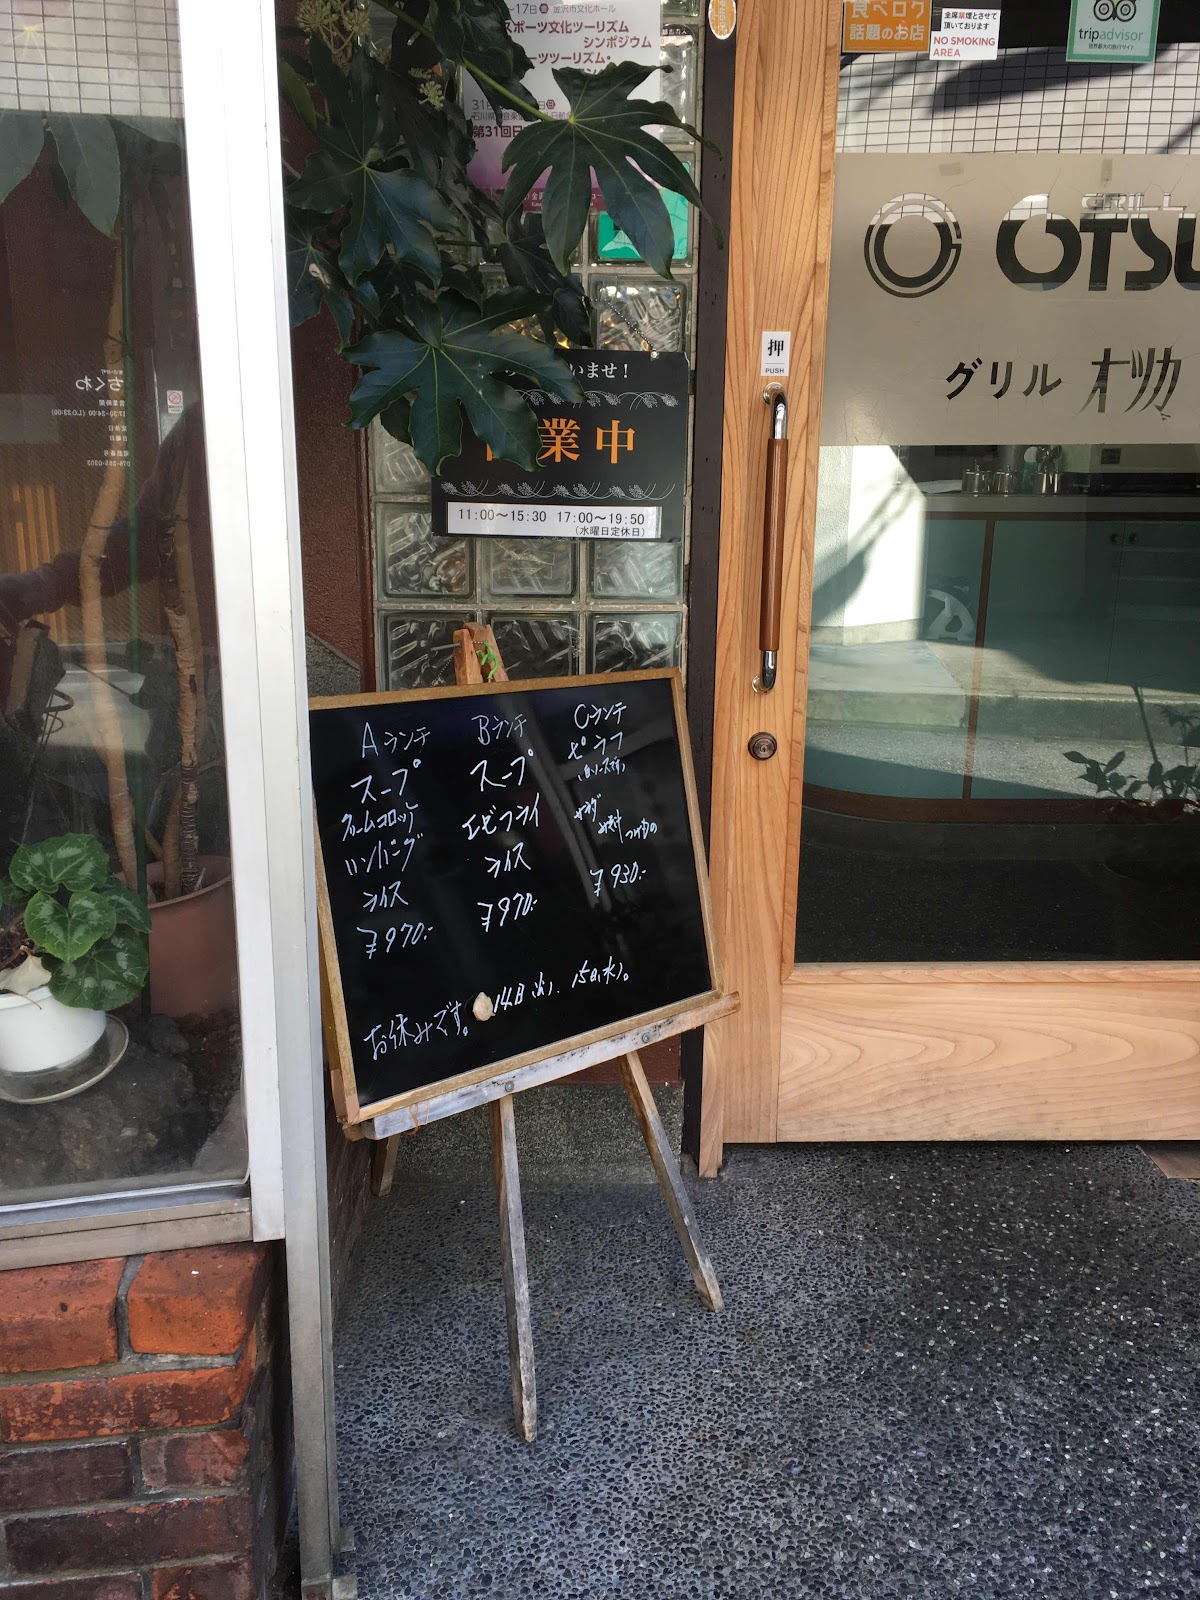 ～17日 日 金沢市文化ホール
スポーツ文化ツーリズム
シンポジウム
第31回日
食べログ
話題のお店
全席禁煙とさせて
頂いております
NO SMOKING
AREA
tripadvisor
GRILL
OTSU
グリル オツカ
押
PUSH
いませ！
業中
11:00～15:30 17:00～19:50
(水曜日定休日)
ちくわ
営業時間
17:30-24:00 (L.O.23:00)
定休日
日曜日
電話番号
Aランチ
スープ
クリームコロッケ
ハンバーグ
ライス
¥970.-
Bランチ
スープ
エビフライ
ライス
¥970.-
Cランチ
ピラフ
サラダ
¥930.-
14日(火)、15日(水)。
お休みです。